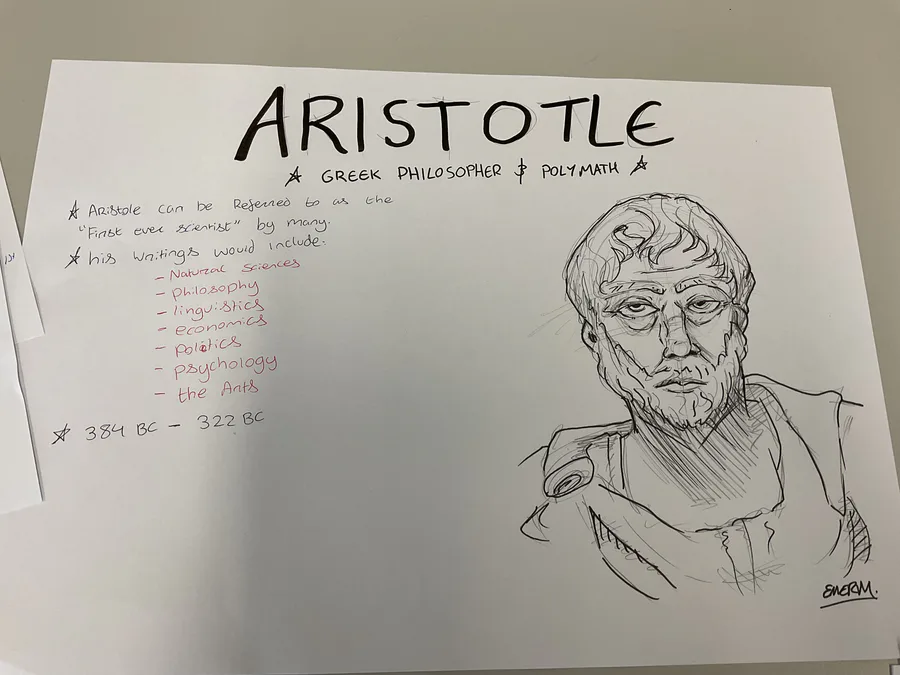 ARISTOTLE
☆ GREEK PHILOSOPHER & POLYMATH ☆
☆ Aristole can be Referred to as the
"First ever scientist" by many.
☆ his writings would include:
- Natural sciences
- philosophy
- linguistics
- economics
- politics
- psychology
- the Arts
☆ 384 BC - 322 BC